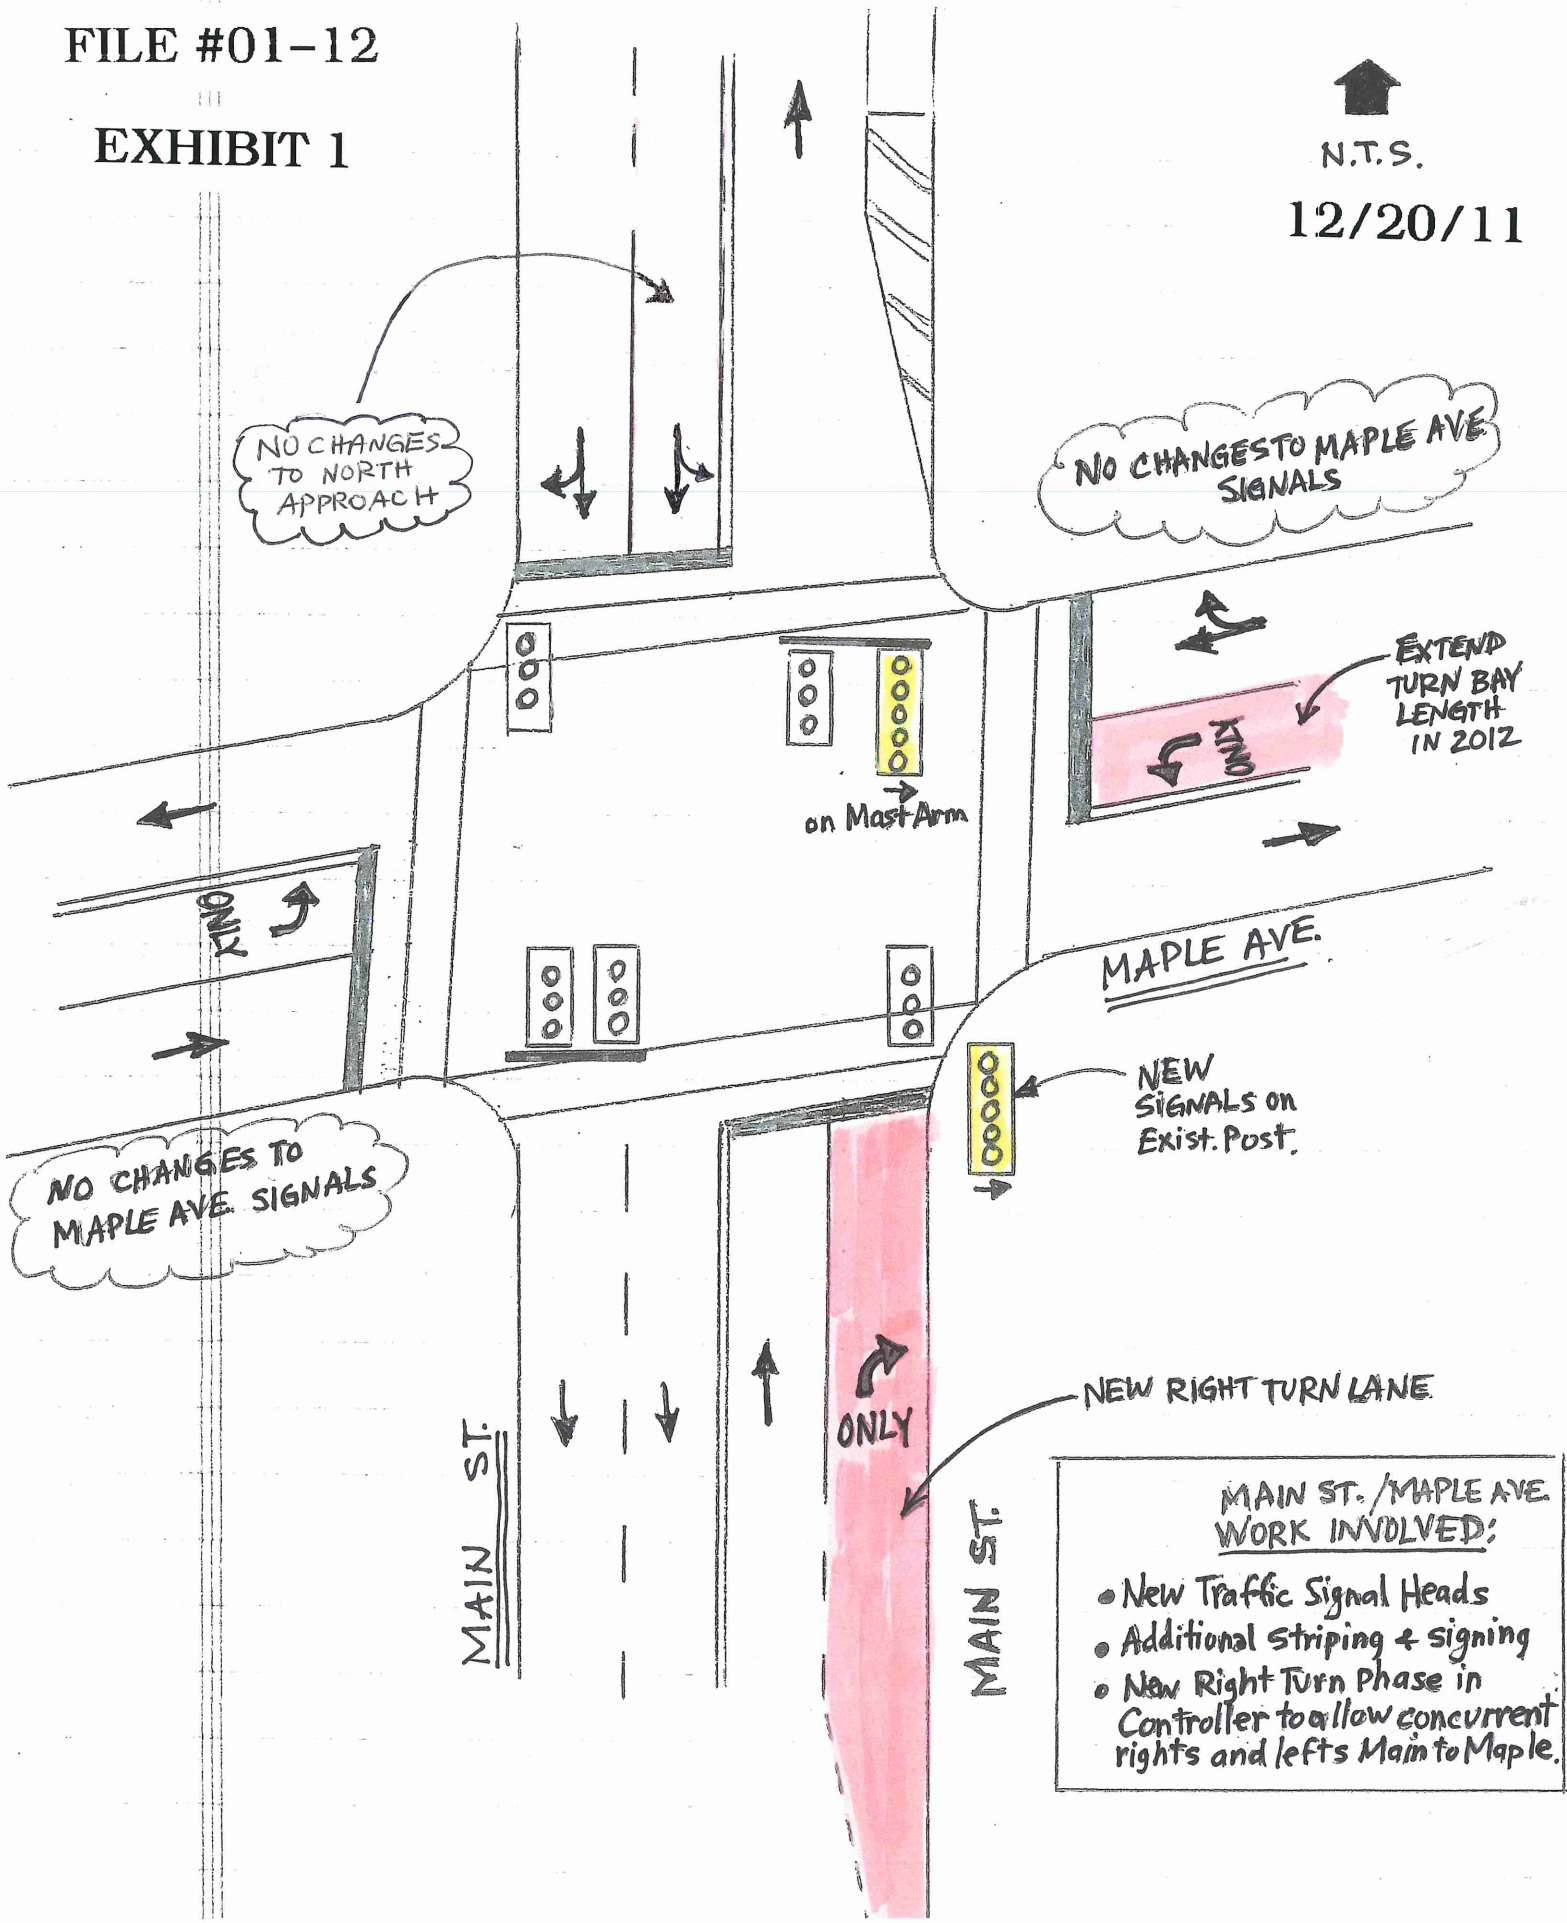 FILE #01-12
EXHIBIT 1
N.T.S.
12/20/11
NO CHANGES
TO NORTH
APPROACH
NO CHANGES TO MAPLE AVE
SIGNALS
EXTEND
TURN BAY
LENGTH
IN 2012
ONLY
on Mast Arm
ONLY
MAPLE AVE.
NEW
SIGNALS on
Exist. Post.
NO CHANGES TO
MAPLE AVE. SIGNALS
NEW RIGHT TURN LANE
ONLY
MAIN ST.
MAIN ST.
MAIN ST. / MAPLE AVE.
WORK INVOLVED:
• New Traffic Signal Heads
• Additional striping & signing
• New Right Turn Phase in
Controller to allow concurrent
rights and lefts Main to Maple.